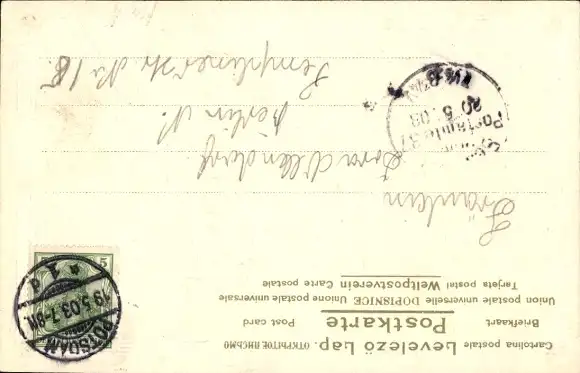 Cartolina postale Levelező Lap. ОТКРЫТОЕ ПИСЬМО
Briefkaart Postkarte Post card
Union postale universelle DOPISNICE Unione postale universale
Tarjeta postal Weltpostverein Carte postale
Fräulein
Dora
Berlin N.
Templinerstr No 18
POTSDAM
19.5.03.7-8N.
5
20 5 03